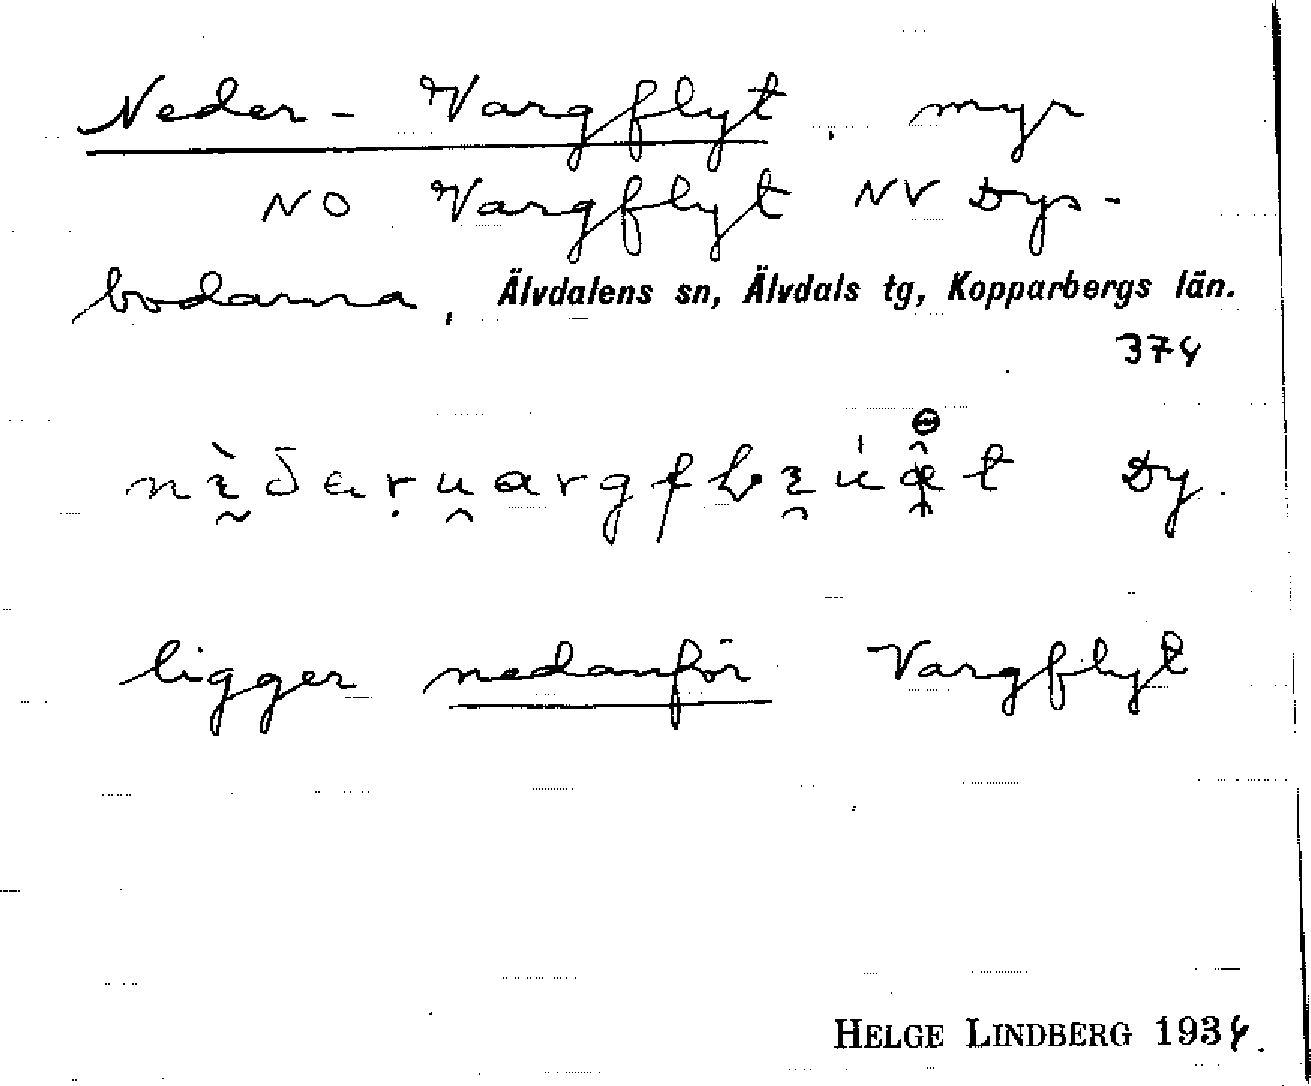 Neder-Vargflyt, myr
NO Vargflyt NV Dys-
bodarna, Älvdalens sn, Älvdals tg, Kopparbergs län.
374
Dy.
ligger nedanför Vargflyt
HELGE LINDBERG 1934.